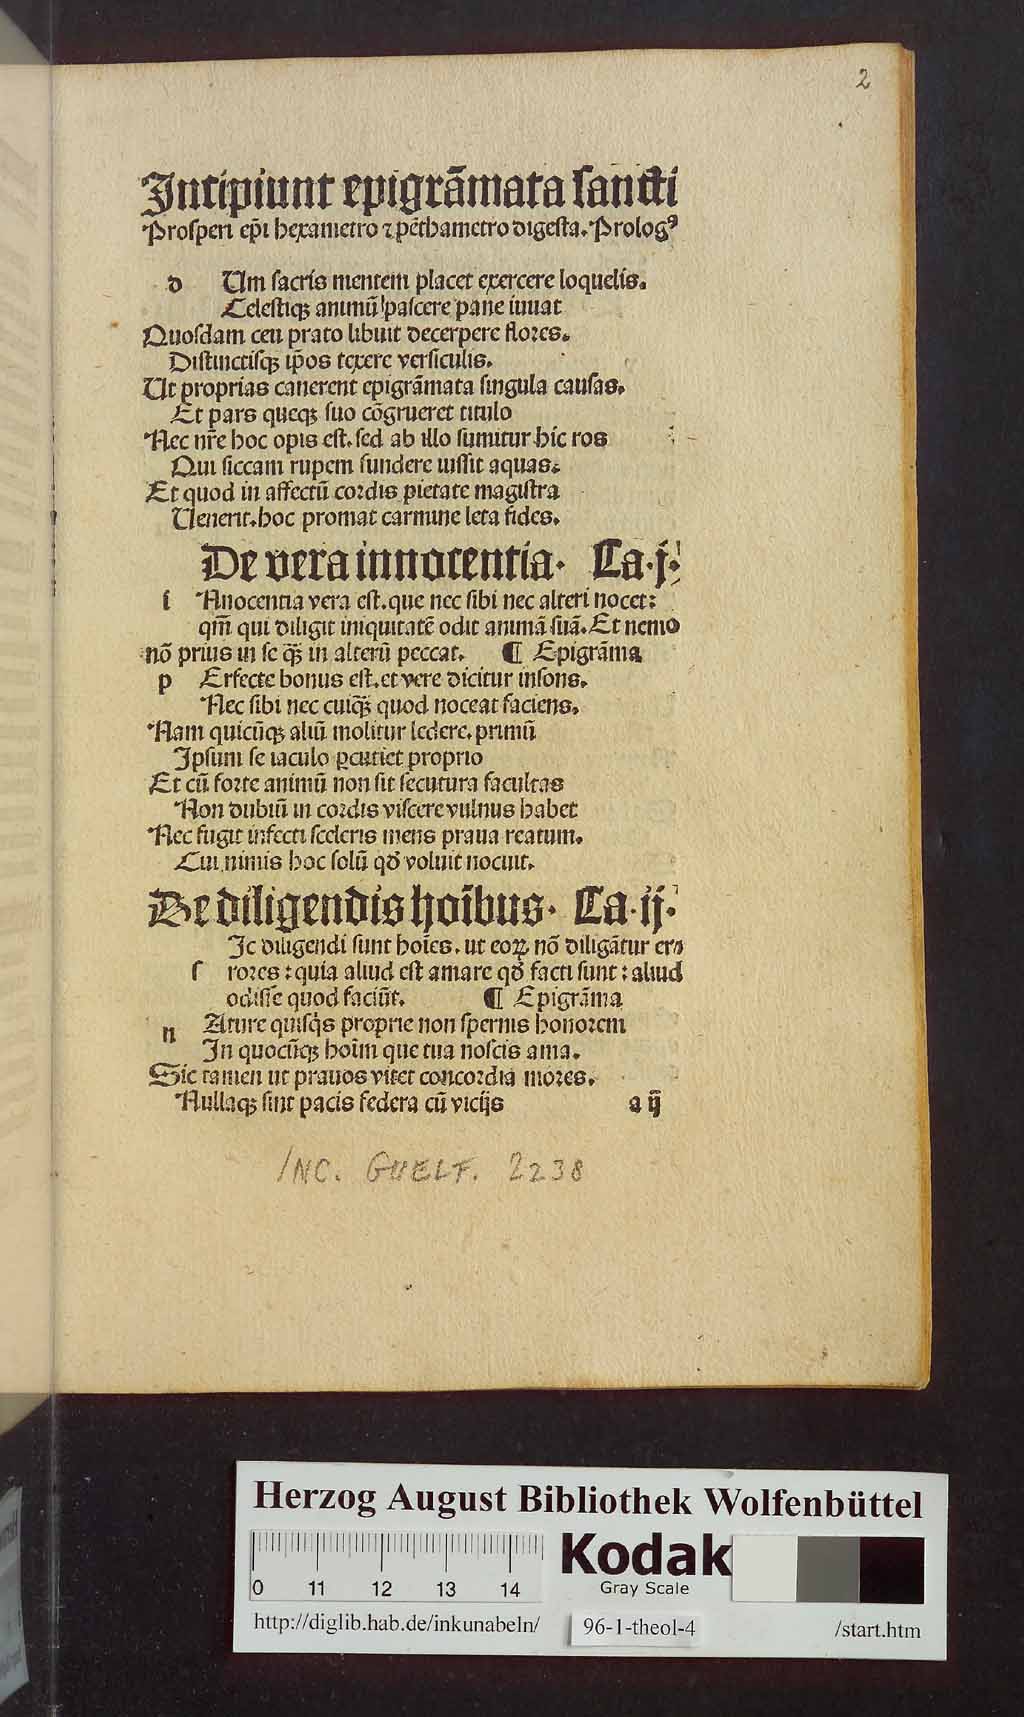 2
Incipiunt epigrāmata sancti
Prosperi ep̄i hexametro ⁊ pēthametro digesta. Prologꝰ
d Um sacris mentem placet exercere loquelis.
Celestiqꝫ animū pascere pane iuuat
Quosdam ceu prato libuit decerpere flores.
Distinctisqꝫ ip̄os texere versiculis.
Ut proprias canerent epigrāmata singula causas.
Et pars queqꝫ suo cōgrueret titulo
Nec nr̄e hoc opis est. sed ab illo sumitur hic ros
Qui siccam rupem fundere iussit aquas.
Et quod in affectū cordis pietate magistra
Uenerit. hoc promat carmine leta fides.
De vera innocentia. Ca.j.
i Nnocentia vera est. que nec sibi nec alteri nocet:
qm̄ qui diligit iniquitatē odit animā suā. Et nemo
nō prius in se qꝫ̄ in alterū peccat. ¶ Epigrāma
p Erfecte bonus est. et vere dicitur insons.
Nec sibi nec cuiqꝫ̄ quod noceat faciens.
Nam quicūqꝫ aliū molitur ledere. primū
Ipsum se iaculo ꝑcutiet proprio
Et cū forte animū non sit secutura facultas
Non dubiū in cordis viscere vulnus habet
Nec fugit infecti sceleris mens praua reatum.
Cui nimis hoc solū qd̄ voluit nocuit.
De diligendis hoībus. Ca.ij.
Ic diligendi sunt hoīes. ut eoꝝ nō diligātur er⸗
s rores: quia aliud est amare qd̄ facti sunt: aliud
odisse quod faciūt. ¶ Epigrāma
n Ature quisq̇s proprie non spernis honorem
In quocūqꝫ hoīm que tua noscis ama.
Sic tamen ut prauos vitet concordia mores.
Nullaqꝫ sint pacis federa cū vicijs a ij
INC. GUELF. 2238
Herzog August Bibliothek Wolfenbüttel
0 11 12 13 14
Kodak
Gray Scale
http://diglib.hab.de/inkunabeln/ 96-1-theol-4 /start.htm